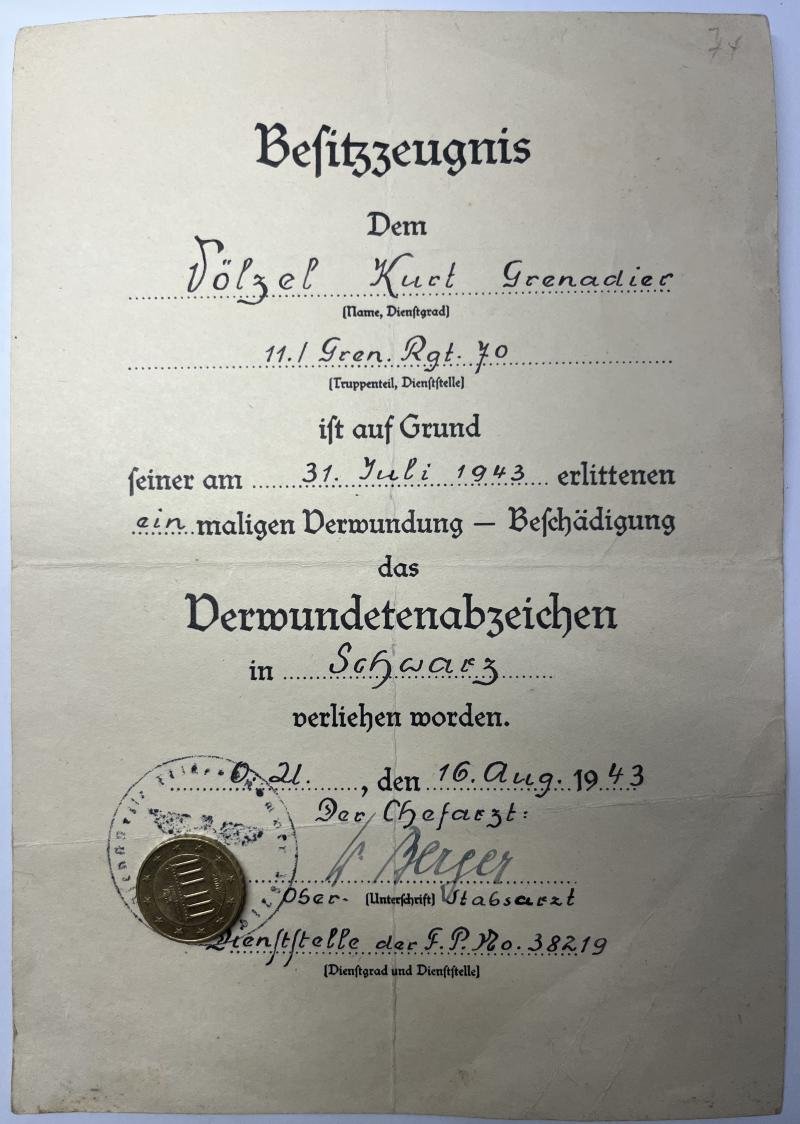 74
Besitzzeugnis
Dem
Völzel Kurt Grenadier
(Name, Dienstgrad)
11./Gren. Rgt. 70
(Truppenteil, Dienststelle)
ist auf Grund
seiner am 31. Juli 1943 erlittenen
ein maligen Verwundung — Beschädigung
das
Verwundetenabzeichen
in Schwarz
verliehen worden.
O. U. , den 16. Aug. 1943
Der Chefarzt:
Berger
Ober- (Unterschrift) Stabsarzt
Dienststelle der F.P.No. 38219
(Dienstgrad und Dienststelle)